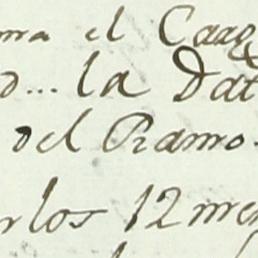 ma el Carg
o... la Dat
del Ramo.
r los 12 me